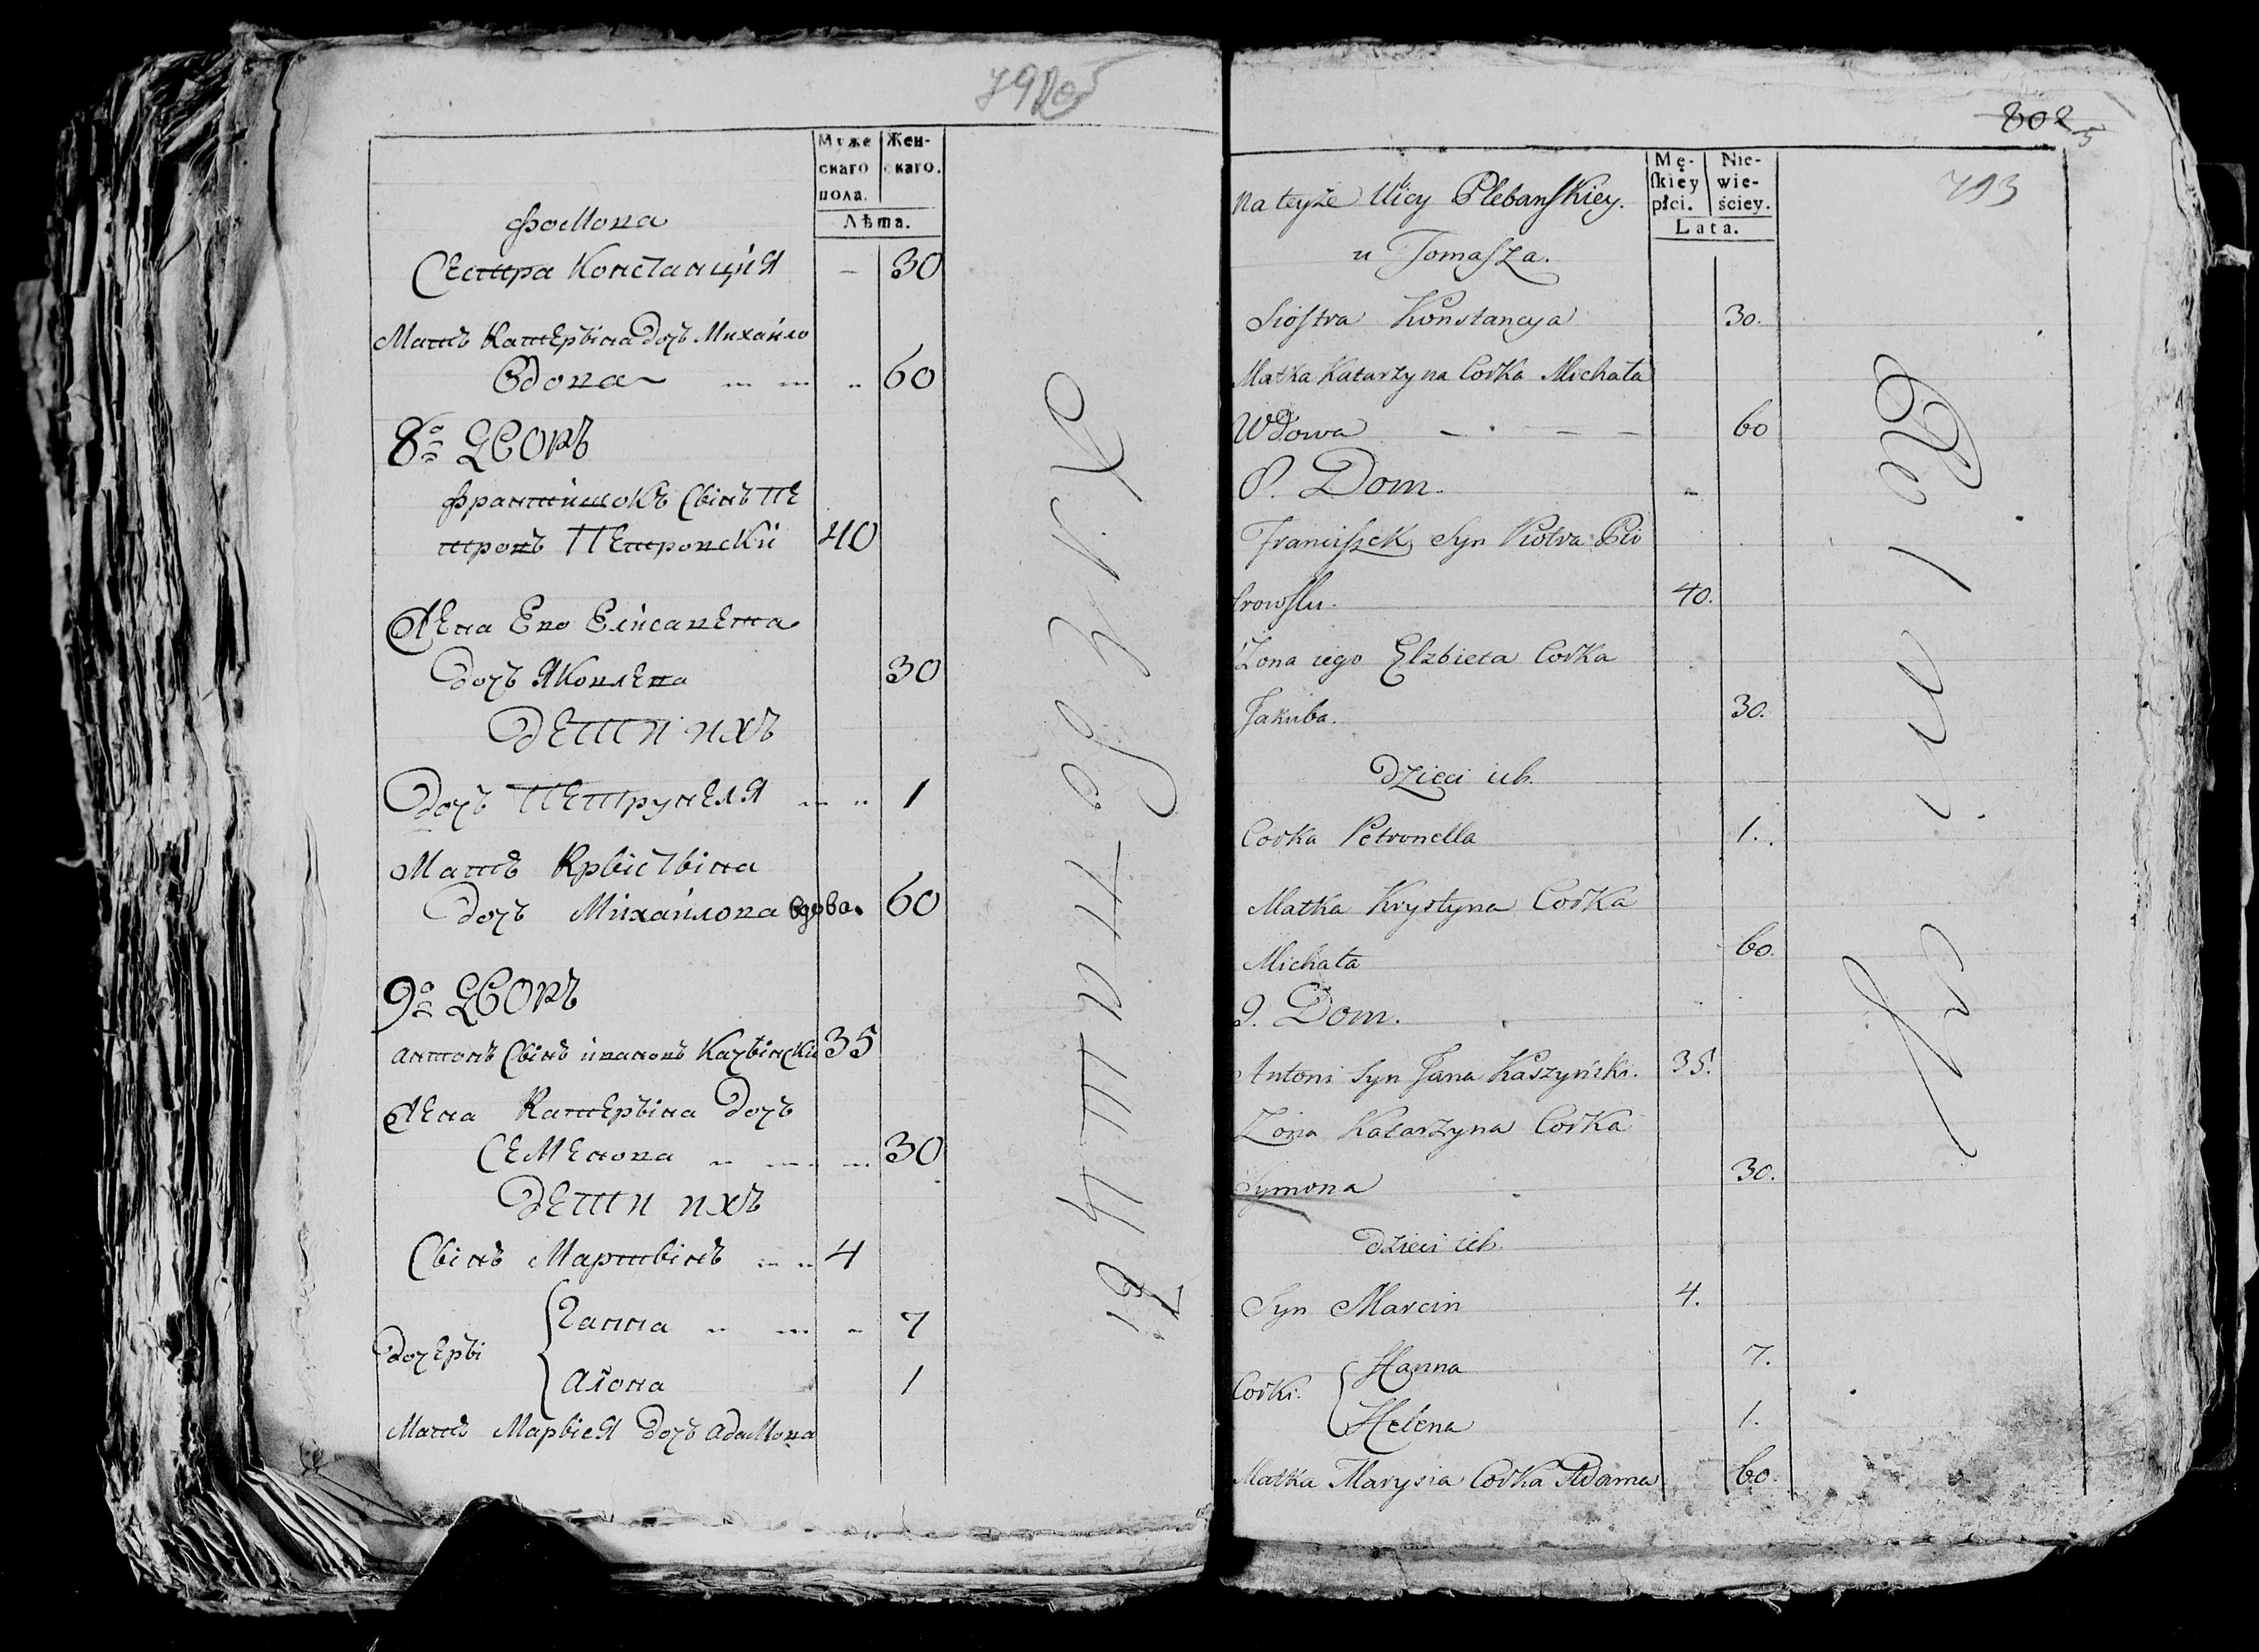 792об
Муже Жен-
скаго скаго.
пола.
Лѣта.
Фомова
Сестра Констанция - 30
Матъ Катерына Дочъ Михайло
Вдова 60
8о Дворъ
Францишокъ Сынъ Пе
тровъ Петровский 40
Жена Его Елисавета
Дочъ Яковлева 30
Дети ихъ
Дочъ Петрунеля 1
Матъ Крыстына
Дочъ Михайлова вдова. 60
9о Дворъ
Антонъ Сынъ ивановъ Качынски 35
Жена Катерына Дочъ
Семенова 30
Дети ихъ
Сынъ Мартынъ 4
Дочеры { Ганна 7
Алона 1
Матъ Марыся Дочъ Адамова
802
5
793
Mę- Nie-
ſkiey wie-
płci. ściey.
Lata.
Na teyże Ulicy Plebanſkiey.
u Tomaſza.
Sioſtra Konstancya 30.
Matka Katarzyna Corka Michała
Wdowa 60
8. Dom.
Franciſzek Syn Piotra Pio
trowſki. 40.
Żona iego Elzbieta Corka
Jakuba. 30.
Dzieci ich.
Corka Petronella 1.
Matka Krystyna Corka
Michała 60.
9. Dom.
Antoni Syn Jana Kaszyński. 35.
Zona Katarzyna Corka
Symona 30.
dzieci ich.
Syn Marcin 4.
Corki. { Hanna 7.
Helena 1.
Matka Marysia Corka Adama 60.